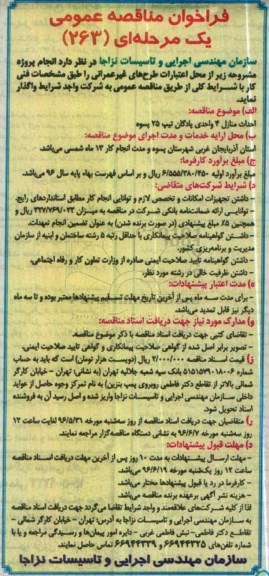 فراخوان مناقصه عمومی
یک مرحله‌ای (۲۶۳)
سازمان مهندسی اجرایی و تاسیسات نزاجا در نظر دارد انجام پروژه
مشروحه زیر از محل اعتبارات طرح‌های غیرعمرانی را طبق مشخصات فنی
کار با شرایط کلی از طریق مناقصه عمومی به شرکت واجد شرایط واگذار
نماید.
الف) موضوع مناقصه:
احداث منازل ۴ واحدی پادگان تیپ ۲۵ پسوه
ب) محل ارایه خدمات و مدت اجرای موضوع مناقصه:
استان آذربایجان غربی شهرستان پسوه و مدت انجام کار ۱۲ ماه شمسی می‌باشد.
ج) مبلغ برآورد کارفرما:
مبلغ برآورد اولیه ۶/۵۵۵/۳۸۰/۴۵۰ ریال و بر اساس فهرست بهاء پایه سال ۹۶ می‌باشد.
د) شرایط شرکت‌های متقاضی:
- داشتن تجهیزات امکانات و تخصص لازم و توانایی انجام کار مطابق استانداردهای رایج.
- توانایی ارائه ضمانت‌نامه بانکی شرکت در مناقصه به میزان ۳۲۷/۷۶۹/۰۲۳ ریال و
همچنین ۵٪ مبلغ پیشنهادی (در صورت برنده شدن) به عنوان تضمین انجام تعهدات.
- داشتن گواهینامه صلاحیت پیمانکاری با حداقل رتبه ۵ رشته ساختمان و ابنیه از سازمان
مدیریت و برنامه‌ریزی کشور.
- داشتن گواهینامه تایید صلاحیت ایمنی صادره از وزارت تعاون کار و رفاه اجتماعی.
- داشتن ظرفیت خالی در رشته مورد نظر.
ه) مدت اعتبار پیشنهادات:
- برای مدت سه ماه پس از آخرین تاریخ مهلت تسلیم پیشنهادها معتبر بوده و تا سه ماه
دیگر نیز قابل تمدید می‌باشد.
و) مدارک مورد نیاز جهت دریافت اسناد مناقصه:
- تقاضای کتبی جهت دریافت اسناد مناقصه با ذکر موضوع مناقصه.
- تصویر برابر اصل شده از گواهی صلاحیت پیمانکاری و گواهی تایید صلاحیت ایمنی.
ز) قیمت اسناد مناقصه ۲/۰۰۰/۰۰۰ ریال (دویست هزار تومان) است که باید به حساب
شماره بانک سپه شعبه جلالیه تهران (به نشانی: تهران – خیابان کارگر
شمالی بالاتر از تقاطع دکتر فاطمی روبروی پمپ بنزین) به نام تمرکز وجوه حاصل از عواید
داخلی سازمان مهندسی اجرایی و تاسیسات نزاجا واریز شده و اصل رسید آن به فروشنده
اسناد تحویل شود.
ژ) متقاضیان جهت دریافت اسناد مناقصه از روز سه‌شنبه مورخه ۹۶/۵/۳۱ لغایت ساعت ۱۲
روز سه‌شنبه مورخه ۹۶/۶/۷ به نشانی دستگاه مناقصه‌گزار مراجعه نمایند.
د) مهلت قبول پیشنهادات:
- مهلت ارسال پیشنهادات به مدت ۱۰ روز پس از آخرین مهلت دریافت اسناد مناقصه
ساعت ۱۲ روز یک‌شنبه مورخه ۹۶/۶/۱۹ می‌باشد.
- کارفرما در رد یا قبول پیشنهادها مختار می‌باشد.
- هزینه نشر آگهی برعهده برنده مناقصه می‌باشد.
لذا از کلیه شرکت‌های علاقمند و واجد شرایط تقاضا می‌گردد جهت دریافت اسناد مناقصه
به سازمان مهندسی اجرایی و تاسیسات نزاجا به آدرس: تهران – خیابان کارگر شمالی –
تقاطع دکتر فاطمی – نبش فاطمی غربی – دایره امور پیمان‌ها و رسیدگی مراجعه و یا با
شماره تلفن‌های ۶۶۹۴۴۳۲۵ و ۶۶۹۴۴۳۳۹ تماس حاصل نمایند.
سازمان مهندسی اجرایی و تاسیسات نزاجا